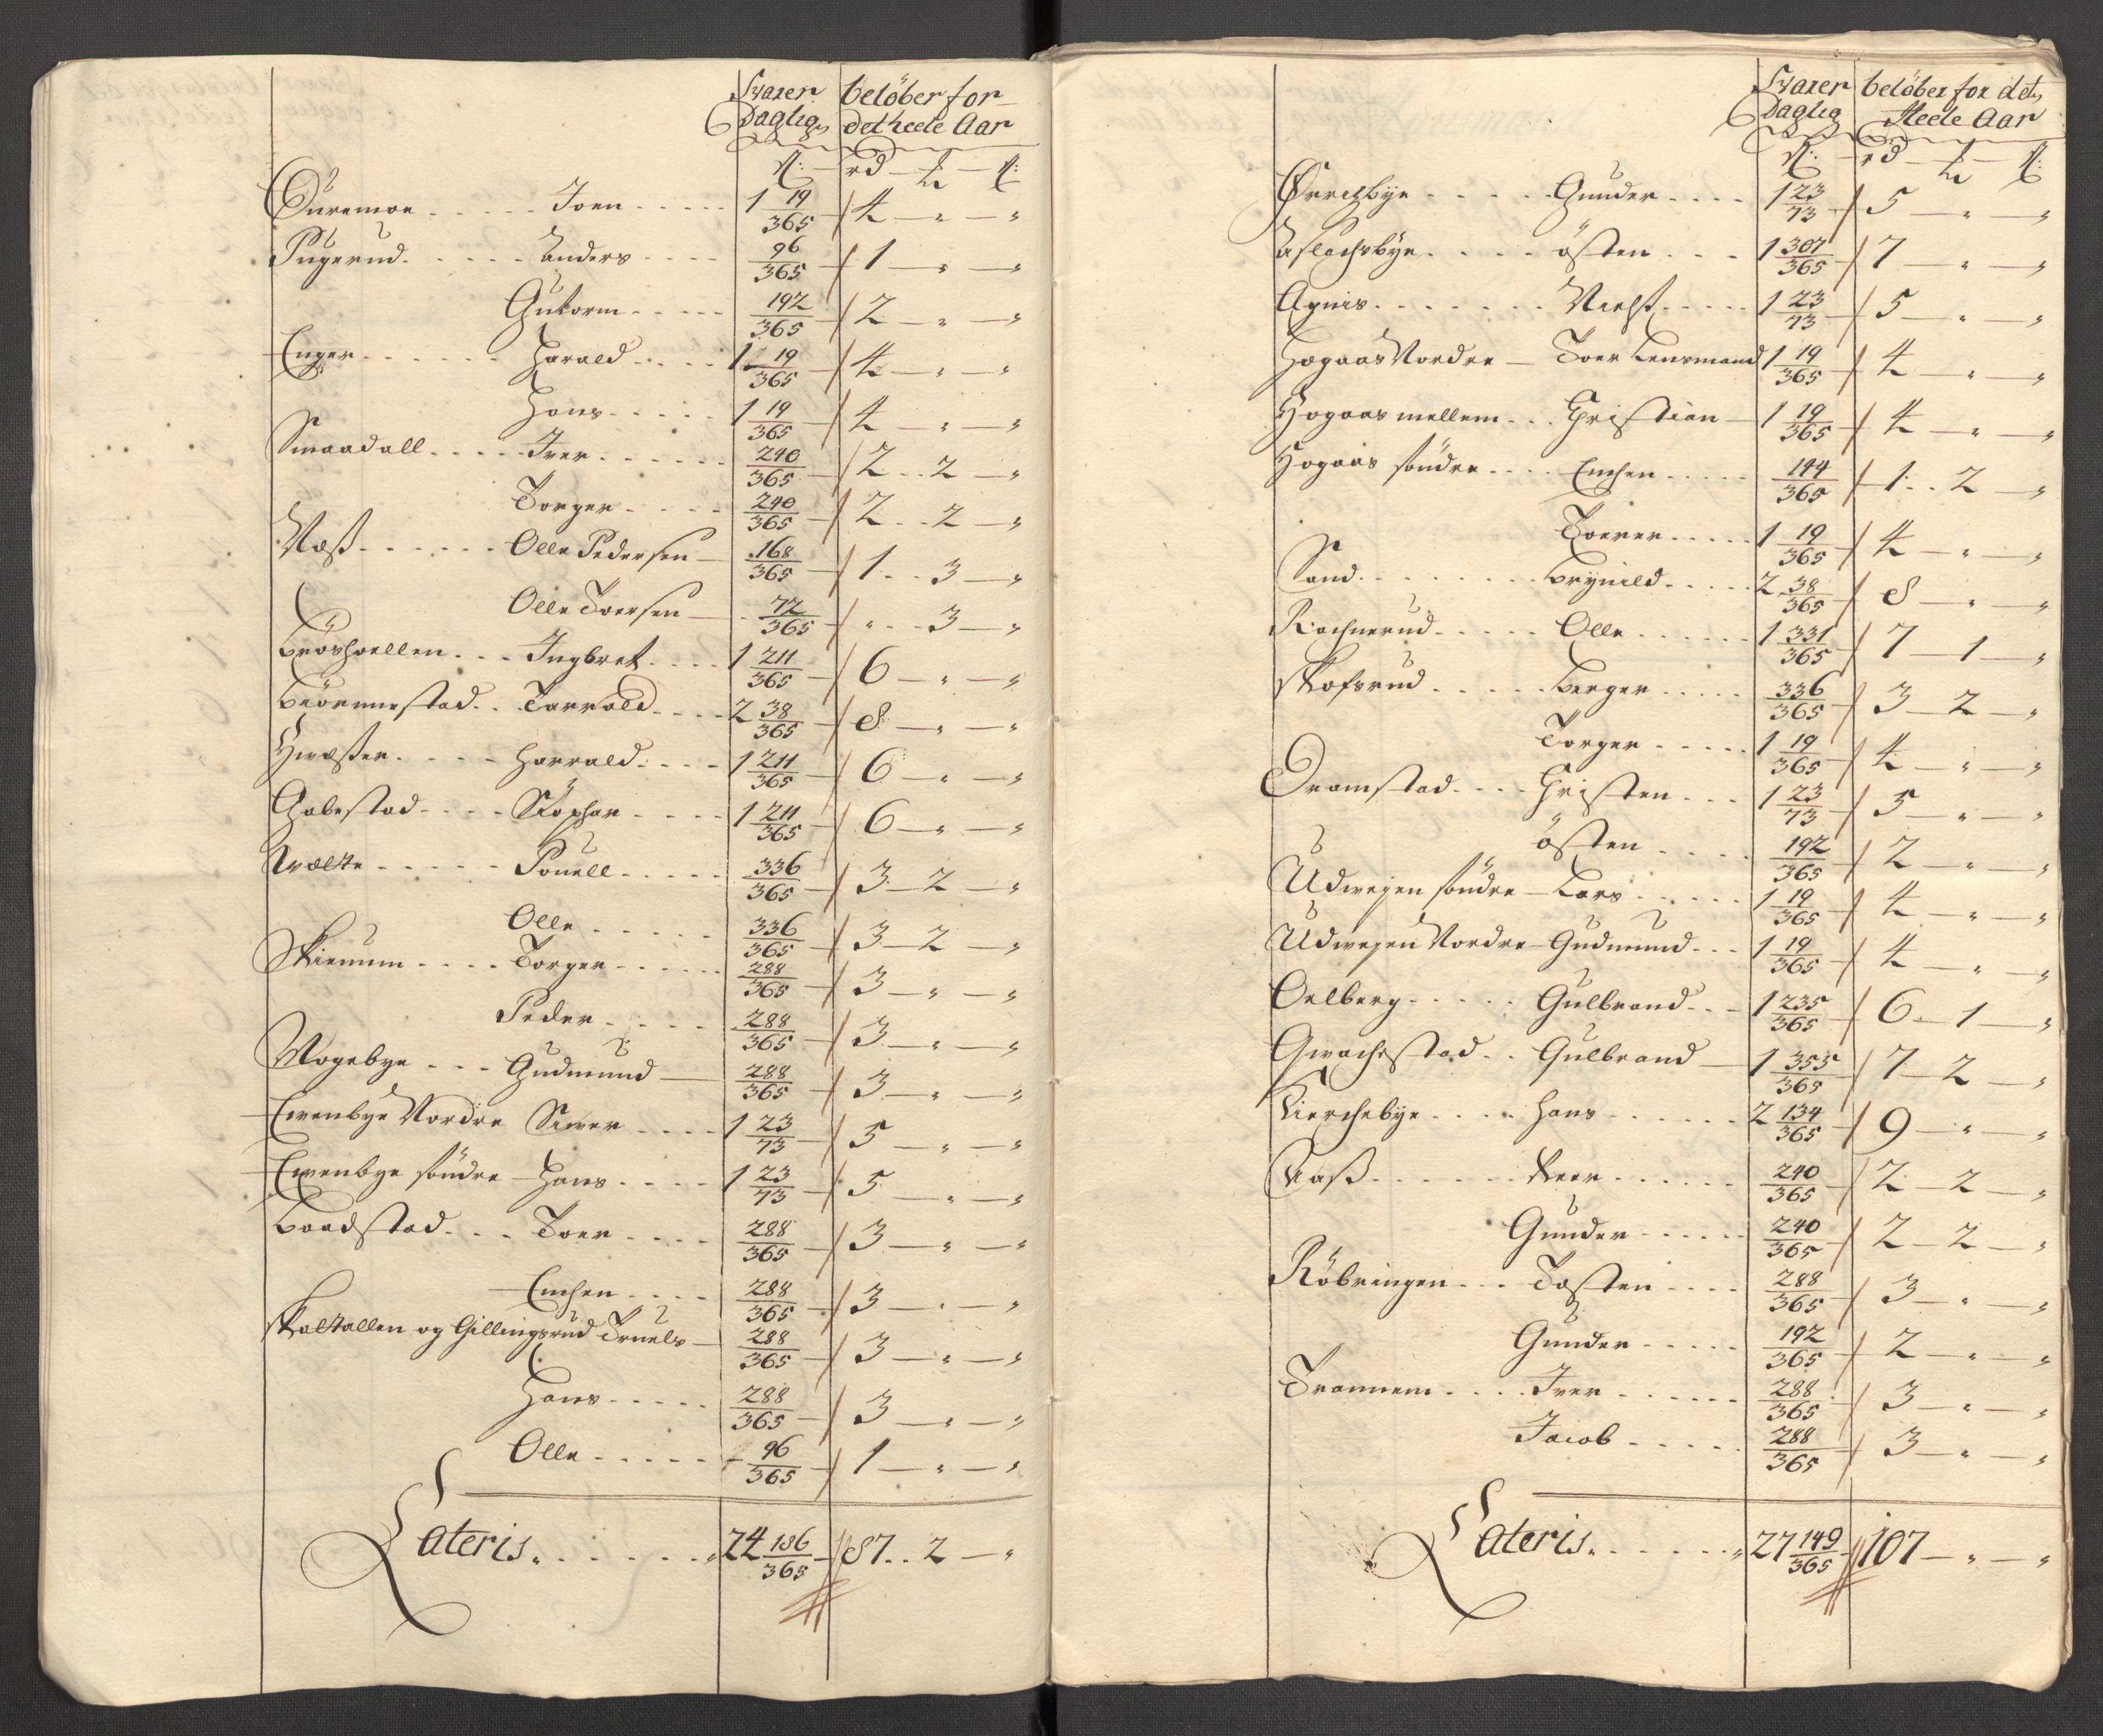 Svarer belöber for
Daglig det heele Aar
ß: rd — ß
Suremoe Joen 1 19/365 4 — „ — „
Pugerud Anders 96/365 1 — „ — „
Gutorm 192/365 2 — „ — „
Enger Harald 1 19/365 4 — „ — „
Hans 1 19/365 4 — „ — „
Smaadall Iver 240/365 2 2 — „
Torger 240/365 2 2 — „
Næss Olle Pedersen 168/365 1 3 — „
Olle Toersen 72/365 „ 3 — „
Ingbret 1 211/365 6 — „ — „
Biörnnestad Tarrald 2 38/365 8 — „ — „
Harrald 1 211/365 6 — „ — „
Gabestad 1 211/365 6 — „ — „
Povell 336/365 3 — 2 — „
Olle 336/365 3 — 2 — „
Skienum Torger 288/365 3 — „ — „
Peder 288/365 3 — „ — „
Mogebye Gudmund 288/365 3 — „ — „
Evenbye Nordre Siver 1 23/73 5 — „ — „
Evenbye söndre Hans 1 23/73 5 — „ — „
Baadstad Toer 288/365 3 — „ — „
Enchen 288/365 3 — „ — „
Skaltallen og Gillingsrud Truels 288/365 3 — „ — „
Hans 288/365 3 — „ — „
Olle 96/365 1 — „ — „
Lateris 24 186/365 87 2 — „
Svarer belöber for det
Daglig Heele Aar
ß: rd — ß
Gunder 1 23/73 5 — „ — „
Aslachsbye östen 1 307/365 7 — „ — „
Agnis 1 23/73 5 — „ — „
Hogaas Nordre — Toer Lensmand 1 19/365 4 — „ — „
Hogaas mellem Christian 1 19/365 4 — „ — „
Hogaas söndre Enchen 144/365 1 2 — „
Toerer 1 19/365 4 — „ — „
Sand Brynild 2 38/365 8 — „ — „
Rachnerud Olle 1 331/365 7 — 1 — „
Skofsrud Berger 336/365 3 — 2 — „
Torger 1 19/365 4 — „ — „
Dramstad Christen 1 23/73 5 — „ — „
östen 192/365 2 — „ — „
Udvejen söndre — Lars 1 19/365 4 — „ — „
Udvejen Nordre — Gudmund 1 19/365 4 — „ — „
Oelberg Gulbrand 1 235/365 6 — 1 — „
Gvachestad Gulbrand 1 355/365 7 — 2 — „
Kierchebye Hans 2 134/365 9 — „ — „
Peer 240/365 2 — 2 — „
Gunder 240/365 2 — 2 — „
Röbringen Tosten 288/365 3 — „ — „
Gunder 192/365 2 — „ — „
Trannem Iver 288/365 3 — „ — „
Jacob 288/365 3 — „ — „
Lateris 27 149/365 107 — „ — „